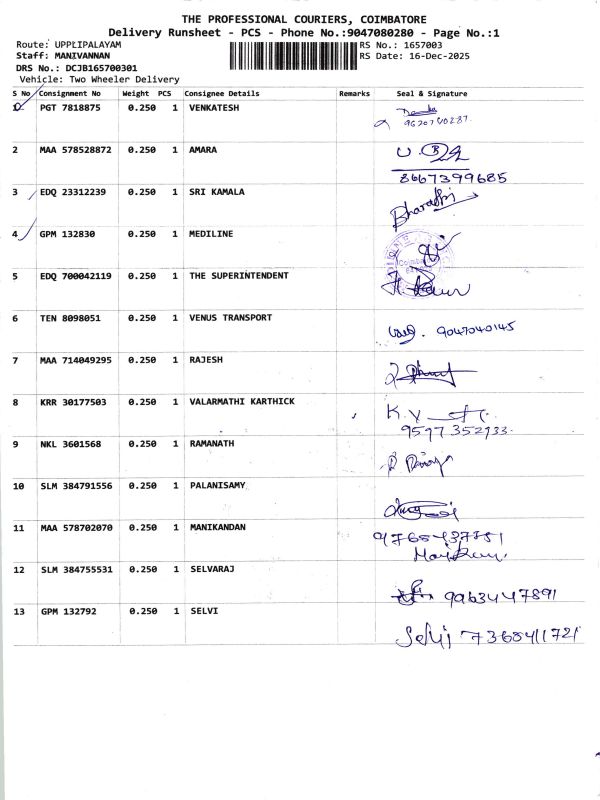 THE PROFESSIONAL COURIERS, COIMBATORE
Delivery Runsheet - PCS - Phone No.:9047080280 - Page No.:1
Route: UPPLIPALAYAM RS No.: 1657003
Staff: MANIVANNAN RS Date: 16-Dec-2025
DRS No.: DCJB165700301
Vehicle: Two Wheeler Delivery
S No Consignment No Weight PCS Consignee Details Remarks Seal & Signature
1 PGT 7818875 0.250 1 VENKATESH
2 MAA 578528872 0.250 1 AMARA
8667399685
3 EDQ 23312239 0.250 1 SRI KAMALA
Bharathi
4 GPM 132830 0.250 1 MEDILINE
5 EDQ 700042119 0.250 1 THE SUPERINTENDENT
6 TEN 8098051 0.250 1 VENUS TRANSPORT
9047040145
7 MAA 714049295 0.250 1 RAJESH
8 KRR 30177503 0.250 1 VALARMATHI KARTHICK
K.V
9597352933
9 NKL 3601568 0.250 1 RAMANATH
10 SLM 384791556 0.250 1 PALANISAMY
11 MAA 578702070 0.250 1 MANIKANDAN
12 SLM 384755531 0.250 1 SELVARAJ
9963447891
13 GPM 132792 0.250 1 SELVI
Selvi 7368411721